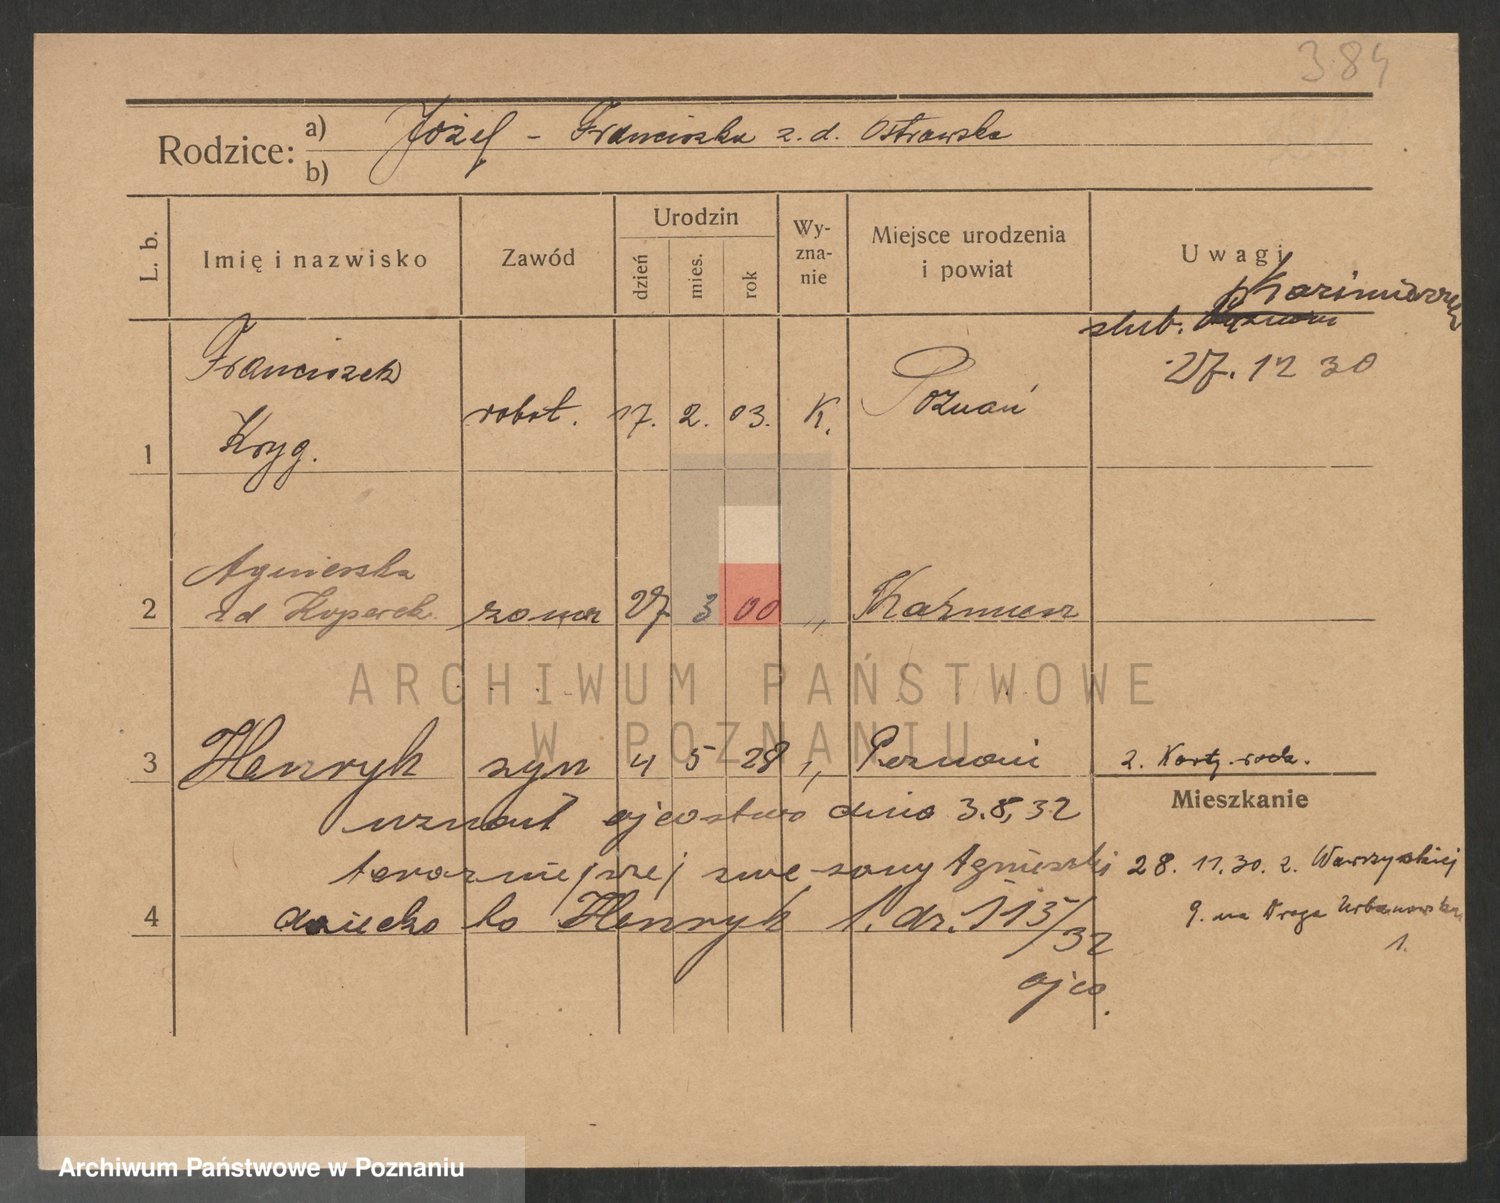 384
Rodzice: a) Józef - Franciszka z. d. Ostrowska
b)
L. b.
Imię i nazwisko
Zawód
Urodzin
dzień
mies.
rok
Wy-
zna-
nie
Miejsce urodzenia
i powiat
Uwagi
p. Kazimierz
ślub. Poznań
27. 12 30
Franciszek
1 Kryg. robot. 17. 2. 03. K. Poznań
Agnieszka
2 zd żona 27 3 00 " Kaźmierz
ARCHIWUM PAŃSTWOWE
W POZNANIU
3 Henryk syn 4 5 28 " Poznań 2. Karty rodz.
Mieszkanie
uznał ojcostwo dnia 3.8.32
teraźniejszej swe żony Agnieszki
28. 11. 30. z. Wawrzyńskiej
9. na Droga Urbanowska
1.
4 dziecko to Henryk l. dz. 113/32
ojco.
Archiwum Państwowe w Poznaniu